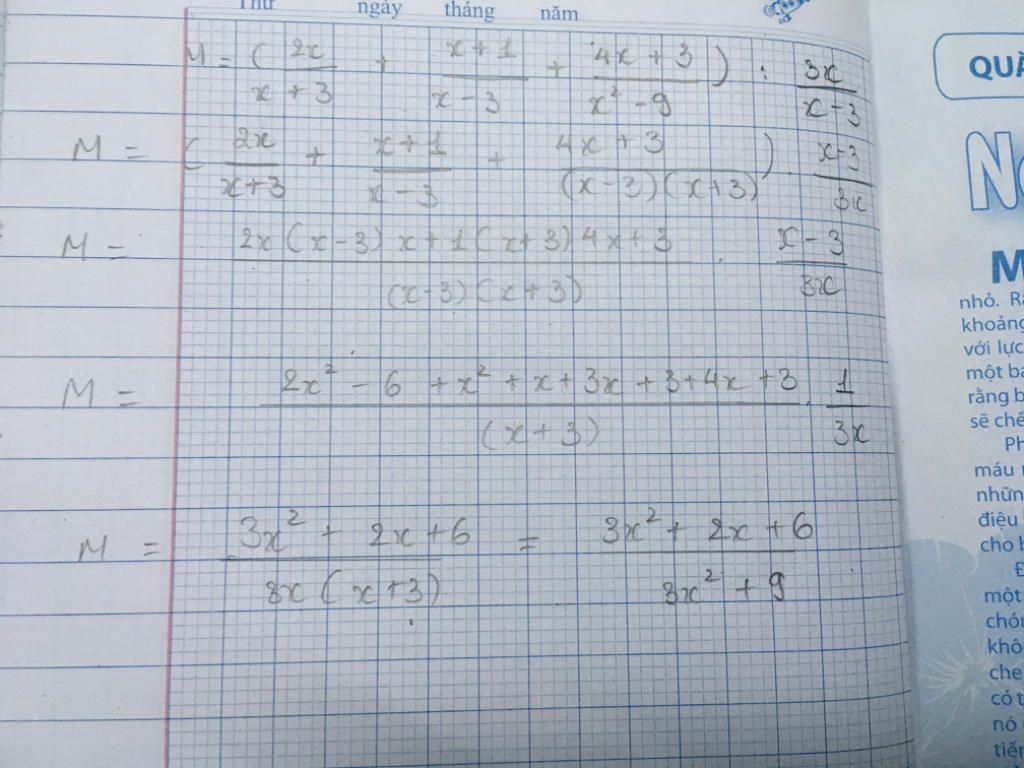 Thứ ngày tháng năm
M = ( 2x/(x + 3) + (x + 1)/(x - 3) + (4x + 3)/(x² - 9) ) : 3x/(x - 3)
M = ( 2x/(x+3) + (x+1)/(x-3) + (4x + 3)/((x-3)(x+3)) ) . (x-3)/3x
M = (2x(x-3) x+1(x+3) 4x+3)/((x-3)(x+3)) . (x-3)/3x
M = (2x² - 6 + x² + x + 3x + 3 + 4x + 3)/(x+3) . 1/3x
M = (3x² + 2x + 6)/(3x(x+3)) = (3x² + 2x + 6)/(3x² + 9)
QUÀ
M
nhỏ.
khoảng
với lực
một
rằng
sẽ
máu
những
điệu
cho
một
khô
che
có
nó